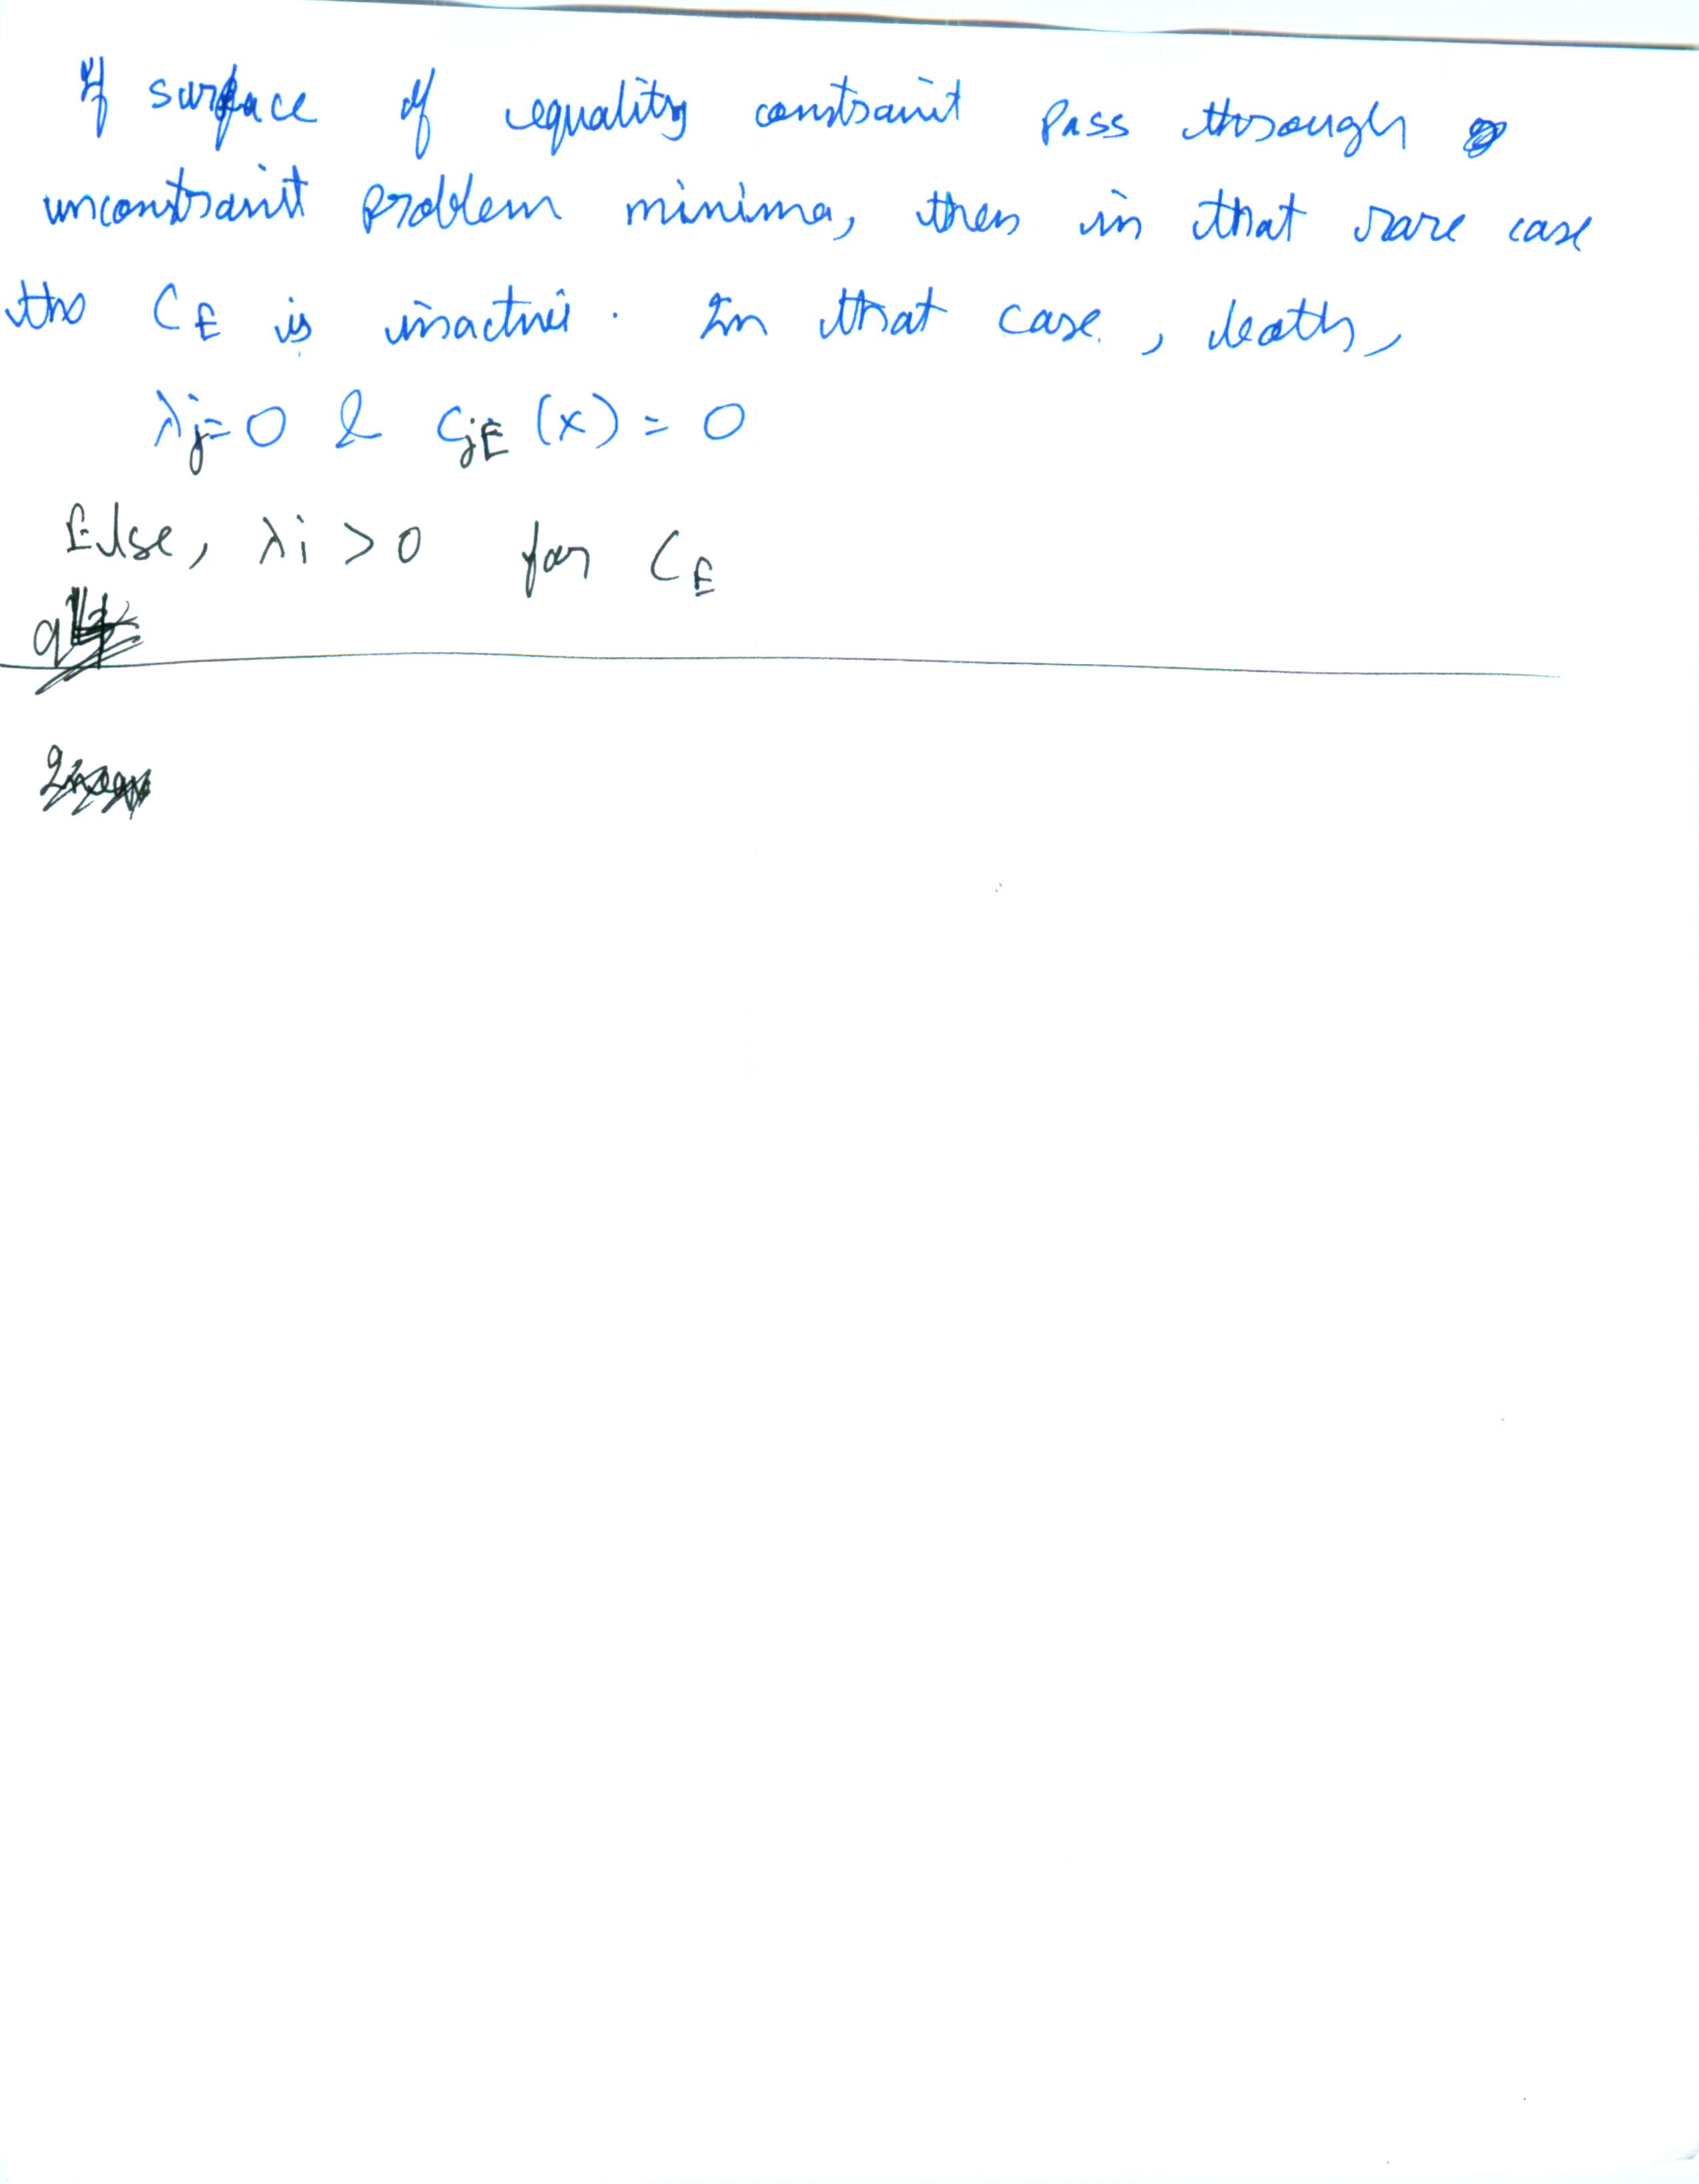 If surface of equality constraint pass through
unconstraint problem minima, then in that rare case
the C_E is inactive. In that case, both,
λj=0 & CjE (x) = 0
Else, λi > 0 for C_E